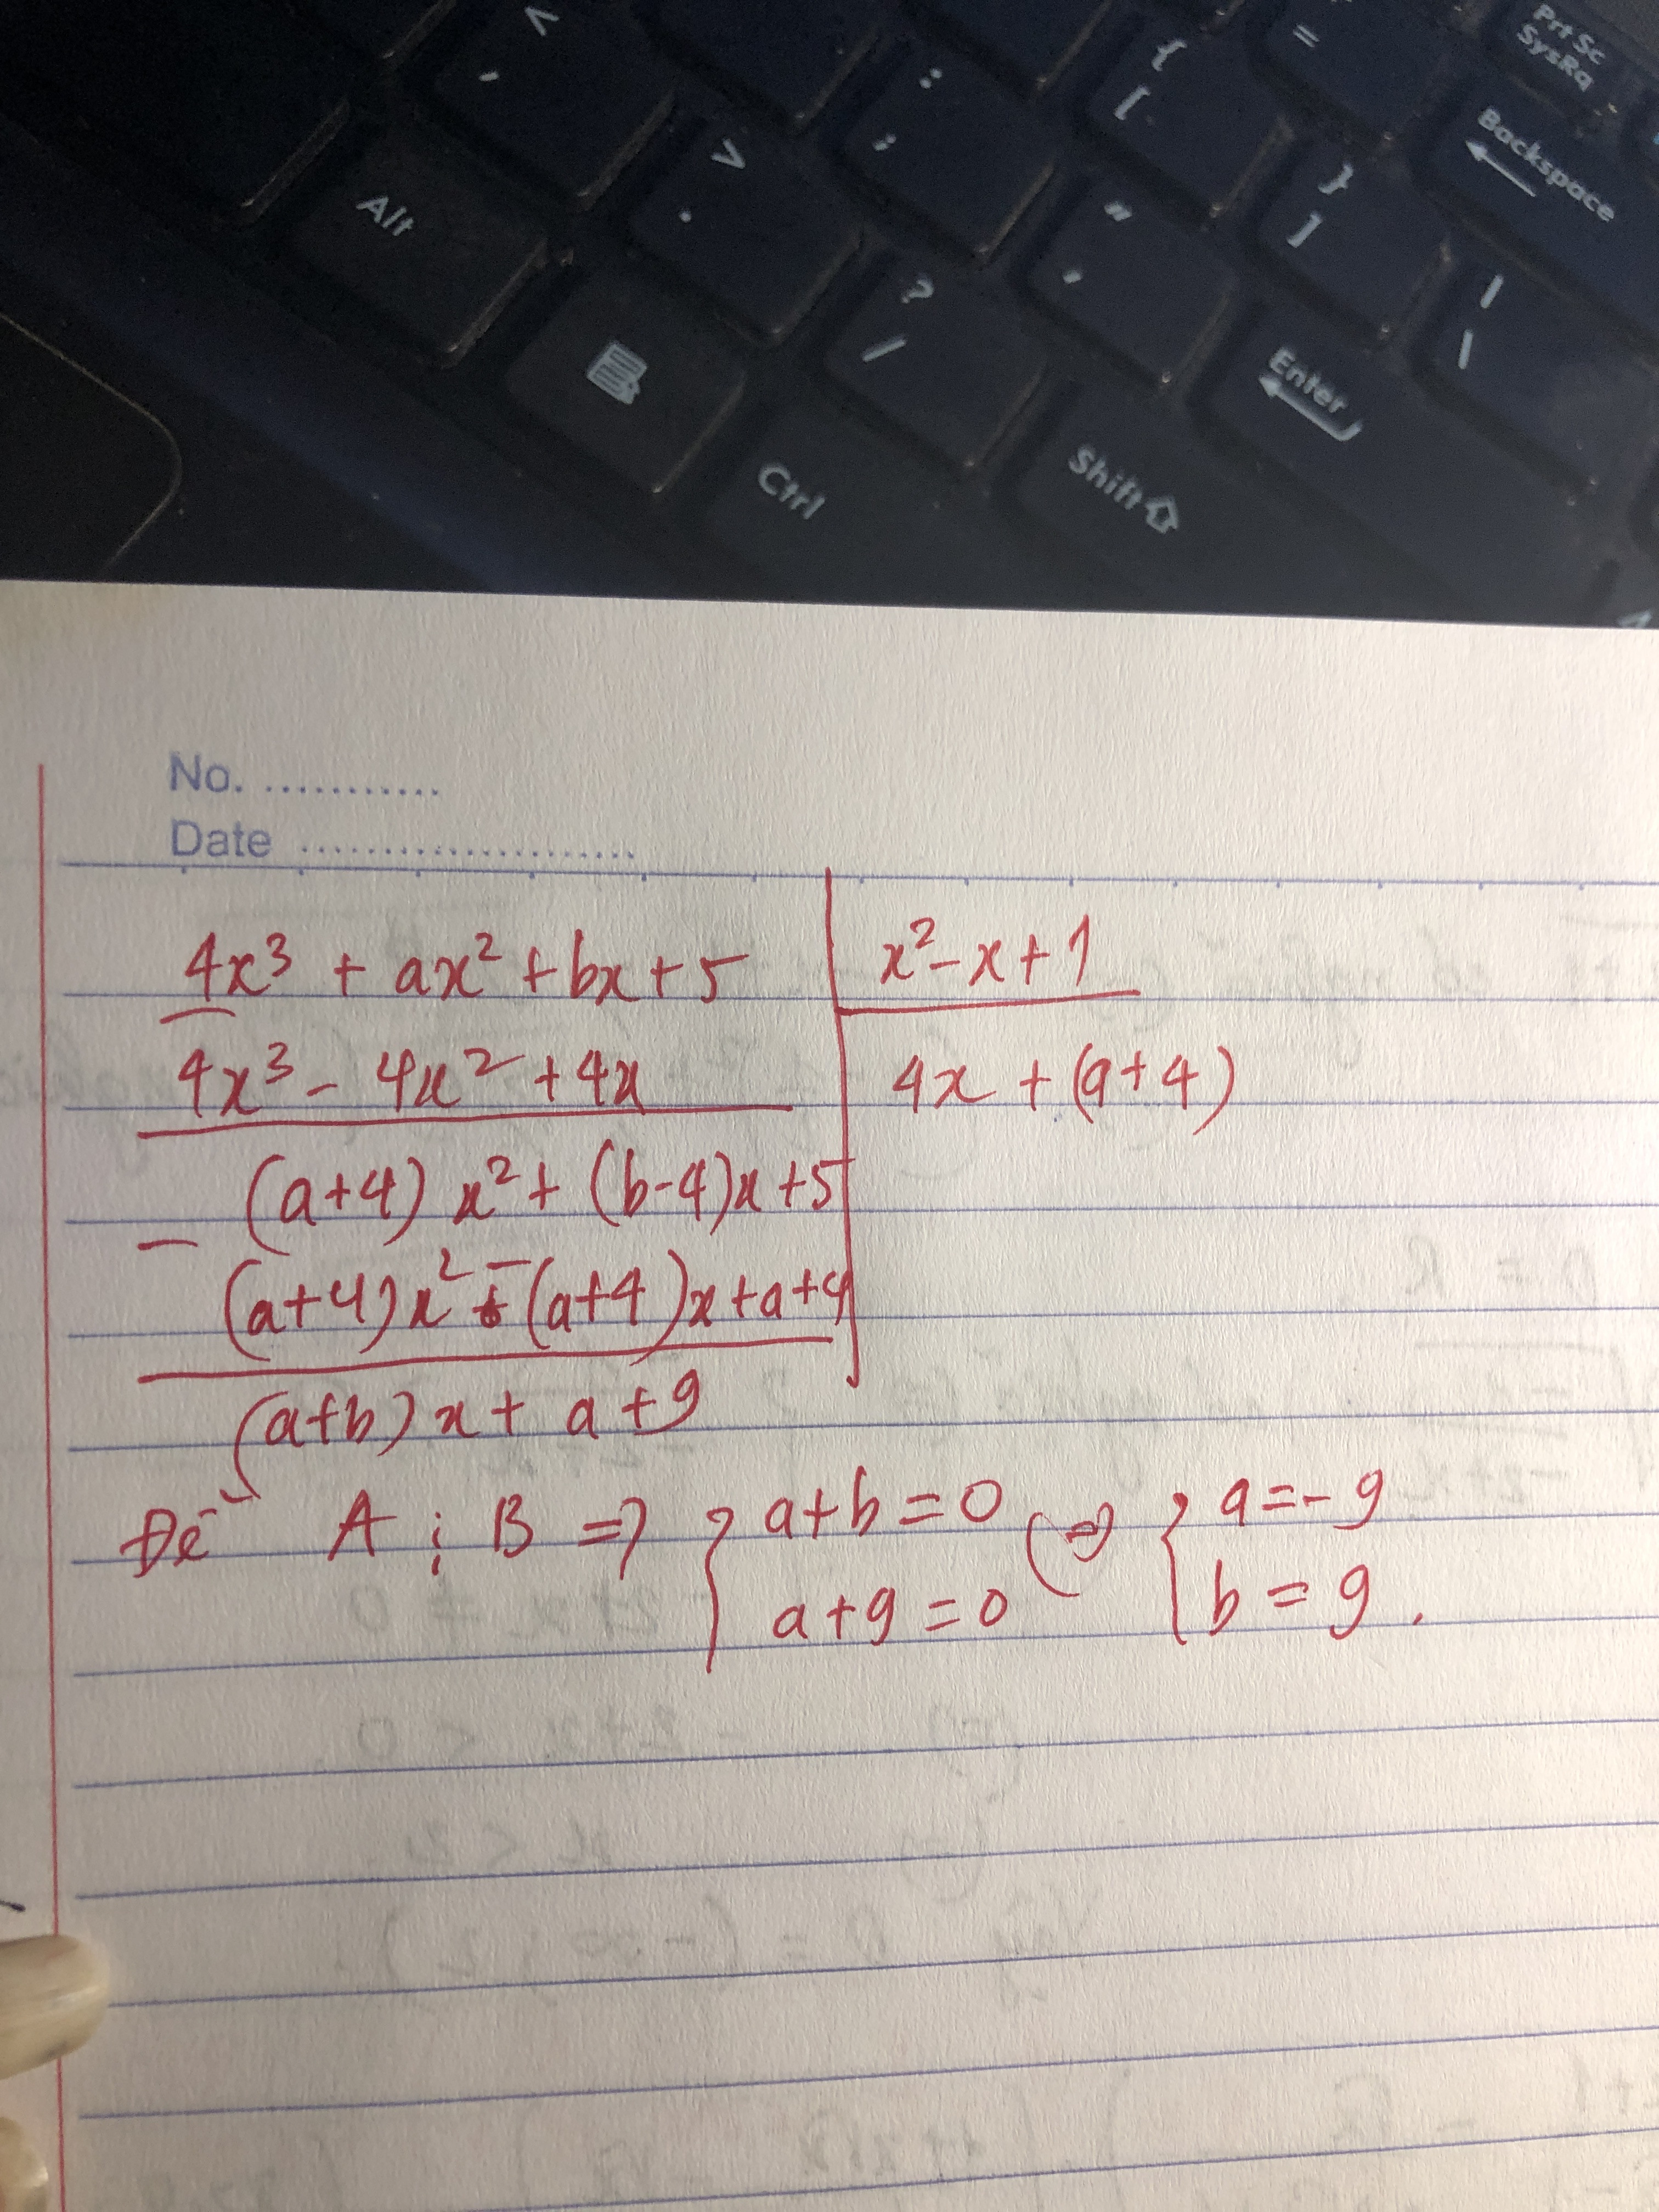 <
,
Alt
>
.
:
;
{
[
=
Prt Sc
SysRq
Backspace
}
]
"
'
?
/
|
\
Enter
Ctrl
Shift
No. ...........
Date ......................
4x³ + ax² + bx + 5 | x² - x + 1
4x³ - 4x² + 4x | 4x + (a+4)
(a+4) x² + (b-4)x + 5
- (a+4)x² - (a+4)x + a+4
(a+b) x + a + 9
Để A ⋮ B => { a+b=0 (=) { a=-9
a+9=0 b=9.